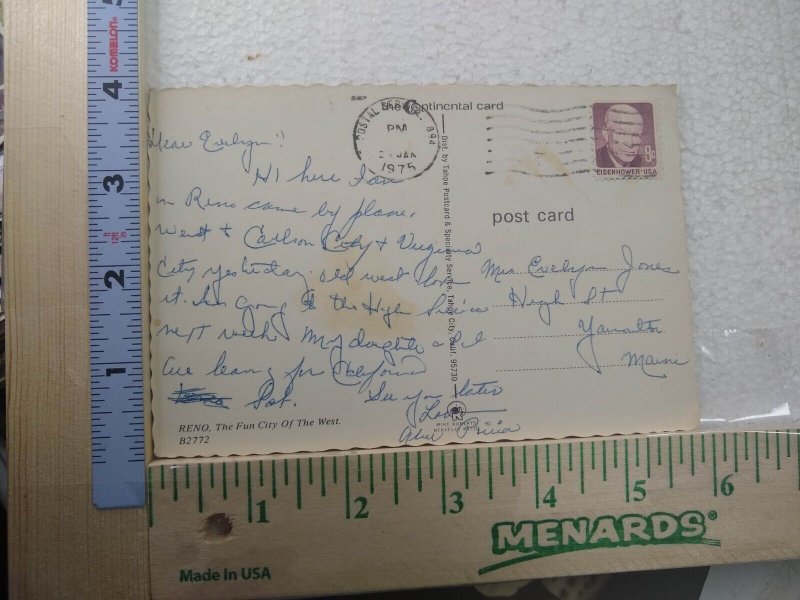 the Continental card
POSTAL SERVICE 894
PM
JAN
1975
8¢
EISENHOWER·USA
Dear Evelyn!
Hi here I am
in Reno came by plane.
Went to Carson City & Virginia
City yesterday. old west love
it. Am going to the High
next week My daughter & I
are leaving for California
Sat. See you later
Love
post card
Mrs. Evelyn Jones
High St
Maine
Dist. by Tahoe Postcard & Specialty Service, Tahoe City, Calif. 95730
RENO, The Fun City Of The West.
B2772
MIKE ROBERTS
BERKELEY 94710
KOMELON
4
3
2
ft
12ft
1 2 3 4 5 6
MENARDS®
Made in USA